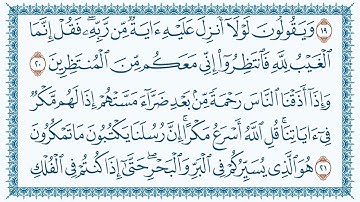 ١٩ وَيَقُولُونَ لَوْلَآ أُنزِلَ عَلَيْهِ ءَايَةٌ مِّن رَّبِّهِۦ ۖ فَقُلْ إِنَّمَا
ٱلْغَيْبُ لِلَّهِ فَٱنتَظِرُوٓا۟ إِنِّى مَعَكُم مِّنَ ٱلْمُنتَظِرِينَ ٢٠
وَإِذَآ أَذَقْنَا ٱلنَّاسَ رَحْمَةً مِّنۢ بَعْدِ ضَرَّآءَ مَسَّتْهُمْ إِذَا لَهُم مَّكْرٌ
فِىٓ ءَايَاتِنَا ۚ قُلِ ٱللَّهُ أَسْرَعُ مَكْرًا ۚ إِنَّ رُسُلَنَا يَكْتُبُونَ مَا تَمْكُرُونَ
٢١ هُوَ ٱلَّذِى يُسَيِّرُكُمْ فِى ٱلْبَرِّ وَٱلْبَحْرِ ۖ حَتَّىٰٓ إِذَا كُنتُمْ فِى ٱلْفُلْكِ